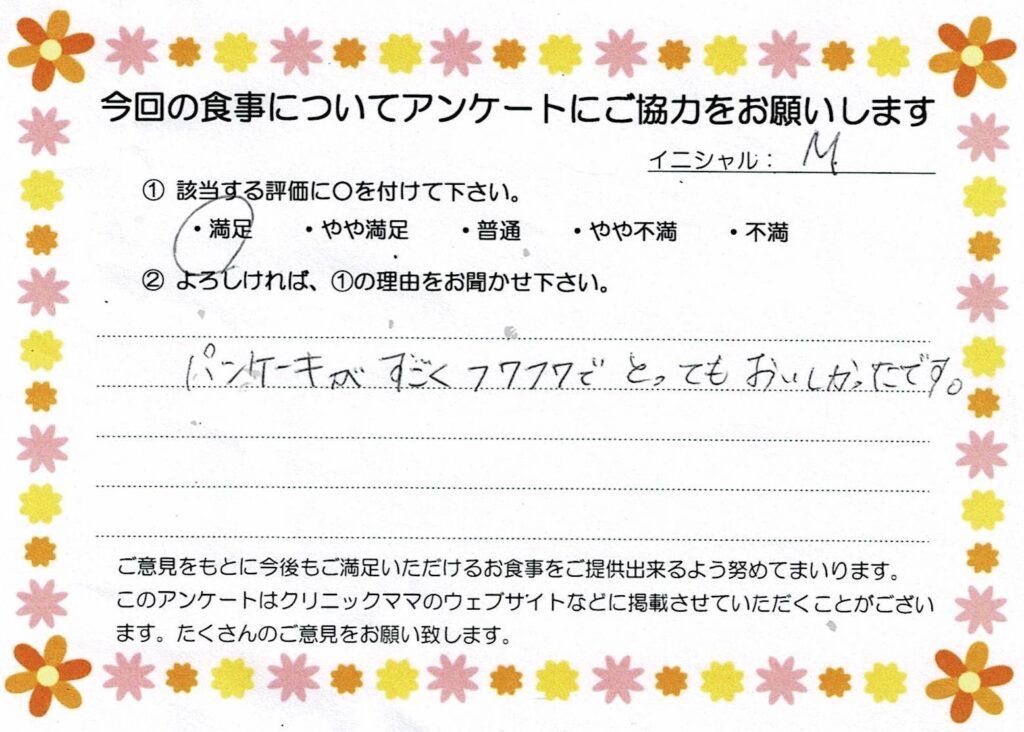 今回の食事についてアンケートにご協力をお願いします
イニシャル： M.
① 該当する評価に〇を付けて下さい。
・満足 ・やや満足 ・普通 ・やや不満 ・不満
② よろしければ、①の理由をお聞かせ下さい。
パンケーキが すごくフワフワで とっても おいしかったです。
ご意見をもとに今後もご満足いただけるお食事をご提供出来るよう努めてまいります。
このアンケートはクリニックママのウェブサイトなどに掲載させていただくことがござい
ます。たくさんのご意見をお願い致します。